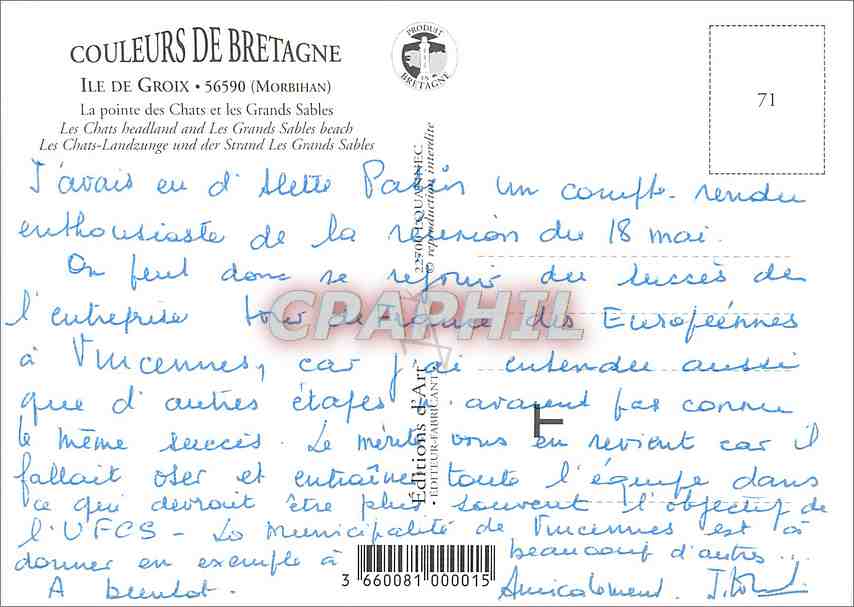 COULEURS DE BRETAGNE
ILE DE GROIX • 56590 (MORBIHAN)
La pointe des Chats et les Grands Sables
Les Chats headland and Les Grands Sables beach
Les Chats-Landzunge und der Strand Les Grands Sables
PRODUIT EN BRETAGNE
71
J'avais eu d' un compte-rendu
enthousiaste de la réunion du 18 mai.
On peut donc se réjouir du succès de
l'entreprise tour de France des Européennes
à Vincennes, car j'ai entendu aussi
que d'autres étapes n'avaient pas connu
le même succès. Le mérite vous en revient car il
fallait oser et entraîner toute l'équipe dans
ce qui devrait être plus souvent l'objectif de
l'UFCS - La Municipalité de Vincennes est à
donner en exemple à beaucoup d'autres...
A bientôt. Amicalement.
Editions d'Art
• EDITEUR-FABRICANT
© reproduction interdite
CPAPHIL
3 660081 000015